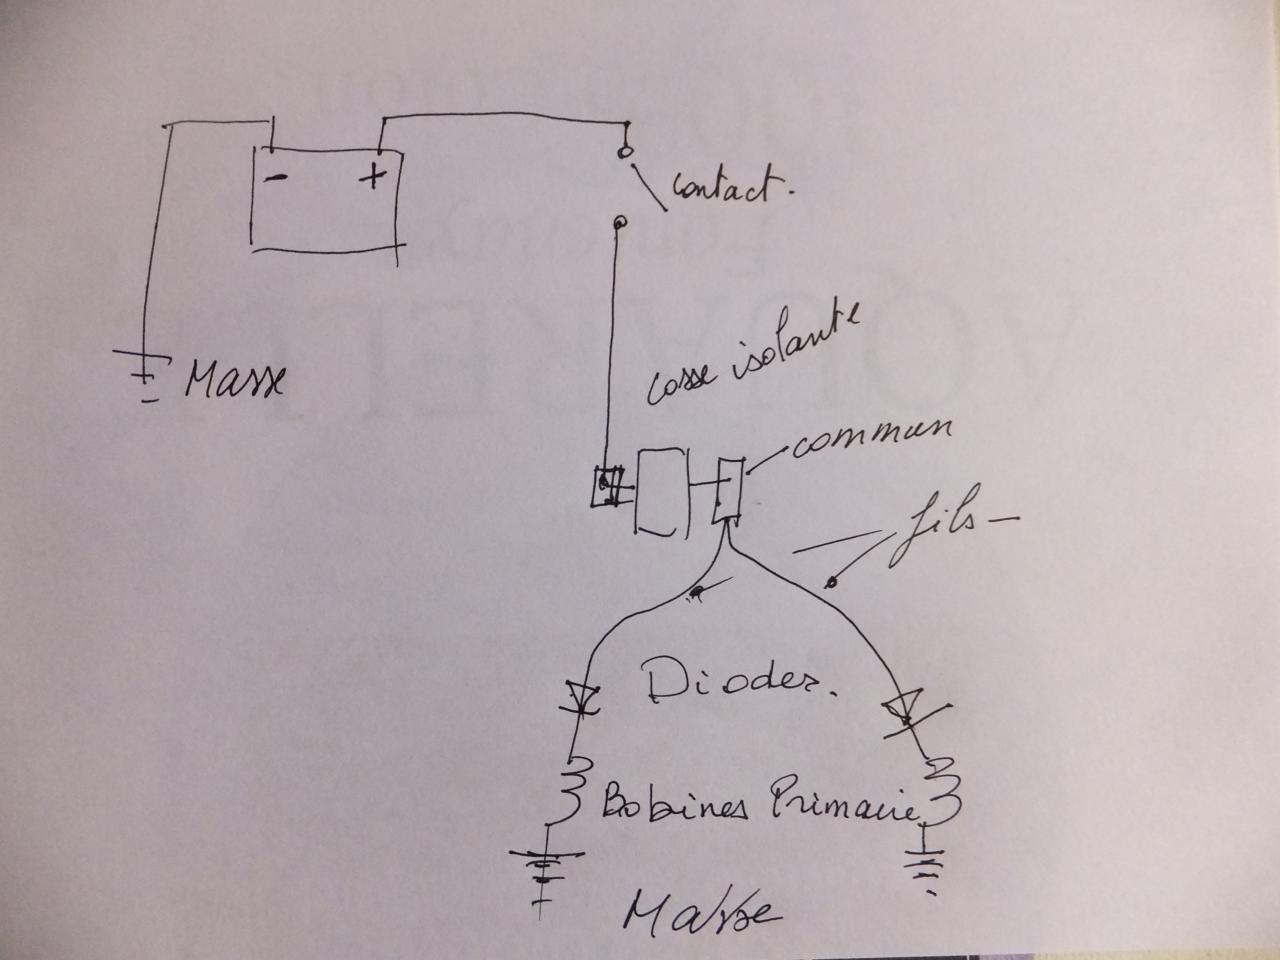 - +
contact.
Masse
cosse isolante
commun
fils
Diodes.
Bobines Primaire
Masse